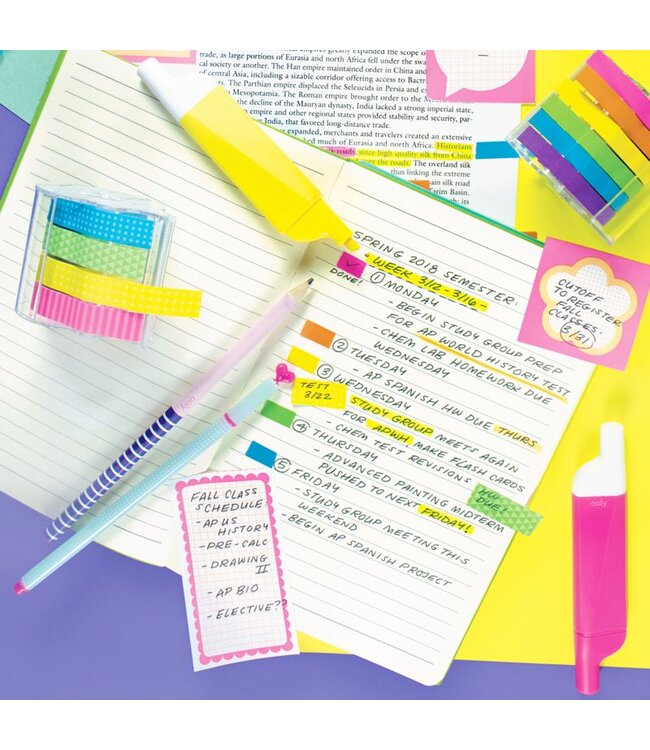 greatly expanded the scope o
trade, as large portions of Eurasia and north Africa fell under the swa
cal society or another. The Han empire maintained order in China and
of central Asia, including a sizable corridor offering access to Bactr
The Parthian empire displaced the Seleucids in Persia and ex
Mesopotamia. The Roman empire brought order to the Me
the decline of the Mauryan dynasty, India lacked a strong imperial state,
empire and other regional states provided stability and security, par-
India, that favored long-distance trade.
expanded, merchants and travelers created an extensive
ked much of Eurasia and north Africa. Historians
silk roads, since high-quality silk from China
over the roads. The overland silk
thus linking the extreme
silk road
Tarim Basin.
its
SPRING 2018 SEMESTER:
• WEEK 3/12-3/16-
DONE!
① MONDAY
- BEGIN STUDY GROUP PREP
FOR AP WORLD HISTORY TEST
- CHEM LAB HOMEWORK DUE
WEDNESDAY
② TUESDAY
- AP SPANISH HW DUE THURS.
③ WEDNESDAY
TEST
3/22
STUDY GROUP MEETS AGAIN
FOR APWH, MAKE FLASH CARDS
- CHEM TEST REVISIONS
④ THURSDAY
- ADVANCED PAINTING MIDTERM
PUSHED TO NEXT FRIDAY!
HW
DUE!
⑤ FRIDAY
- STUDY GROUP MEETING THIS
WEEKEND
- BEGIN AP SPANISH PROJECT
CUTOFF
TO REGISTER
FALL
CLASSES!
(3/31)
FALL CLASS
SCHEDULE:
- AP US
HISTORY
- PRE-CALC
- DRAWING
II
- AP BIO
- ELECTIVE??
ooly
ooly